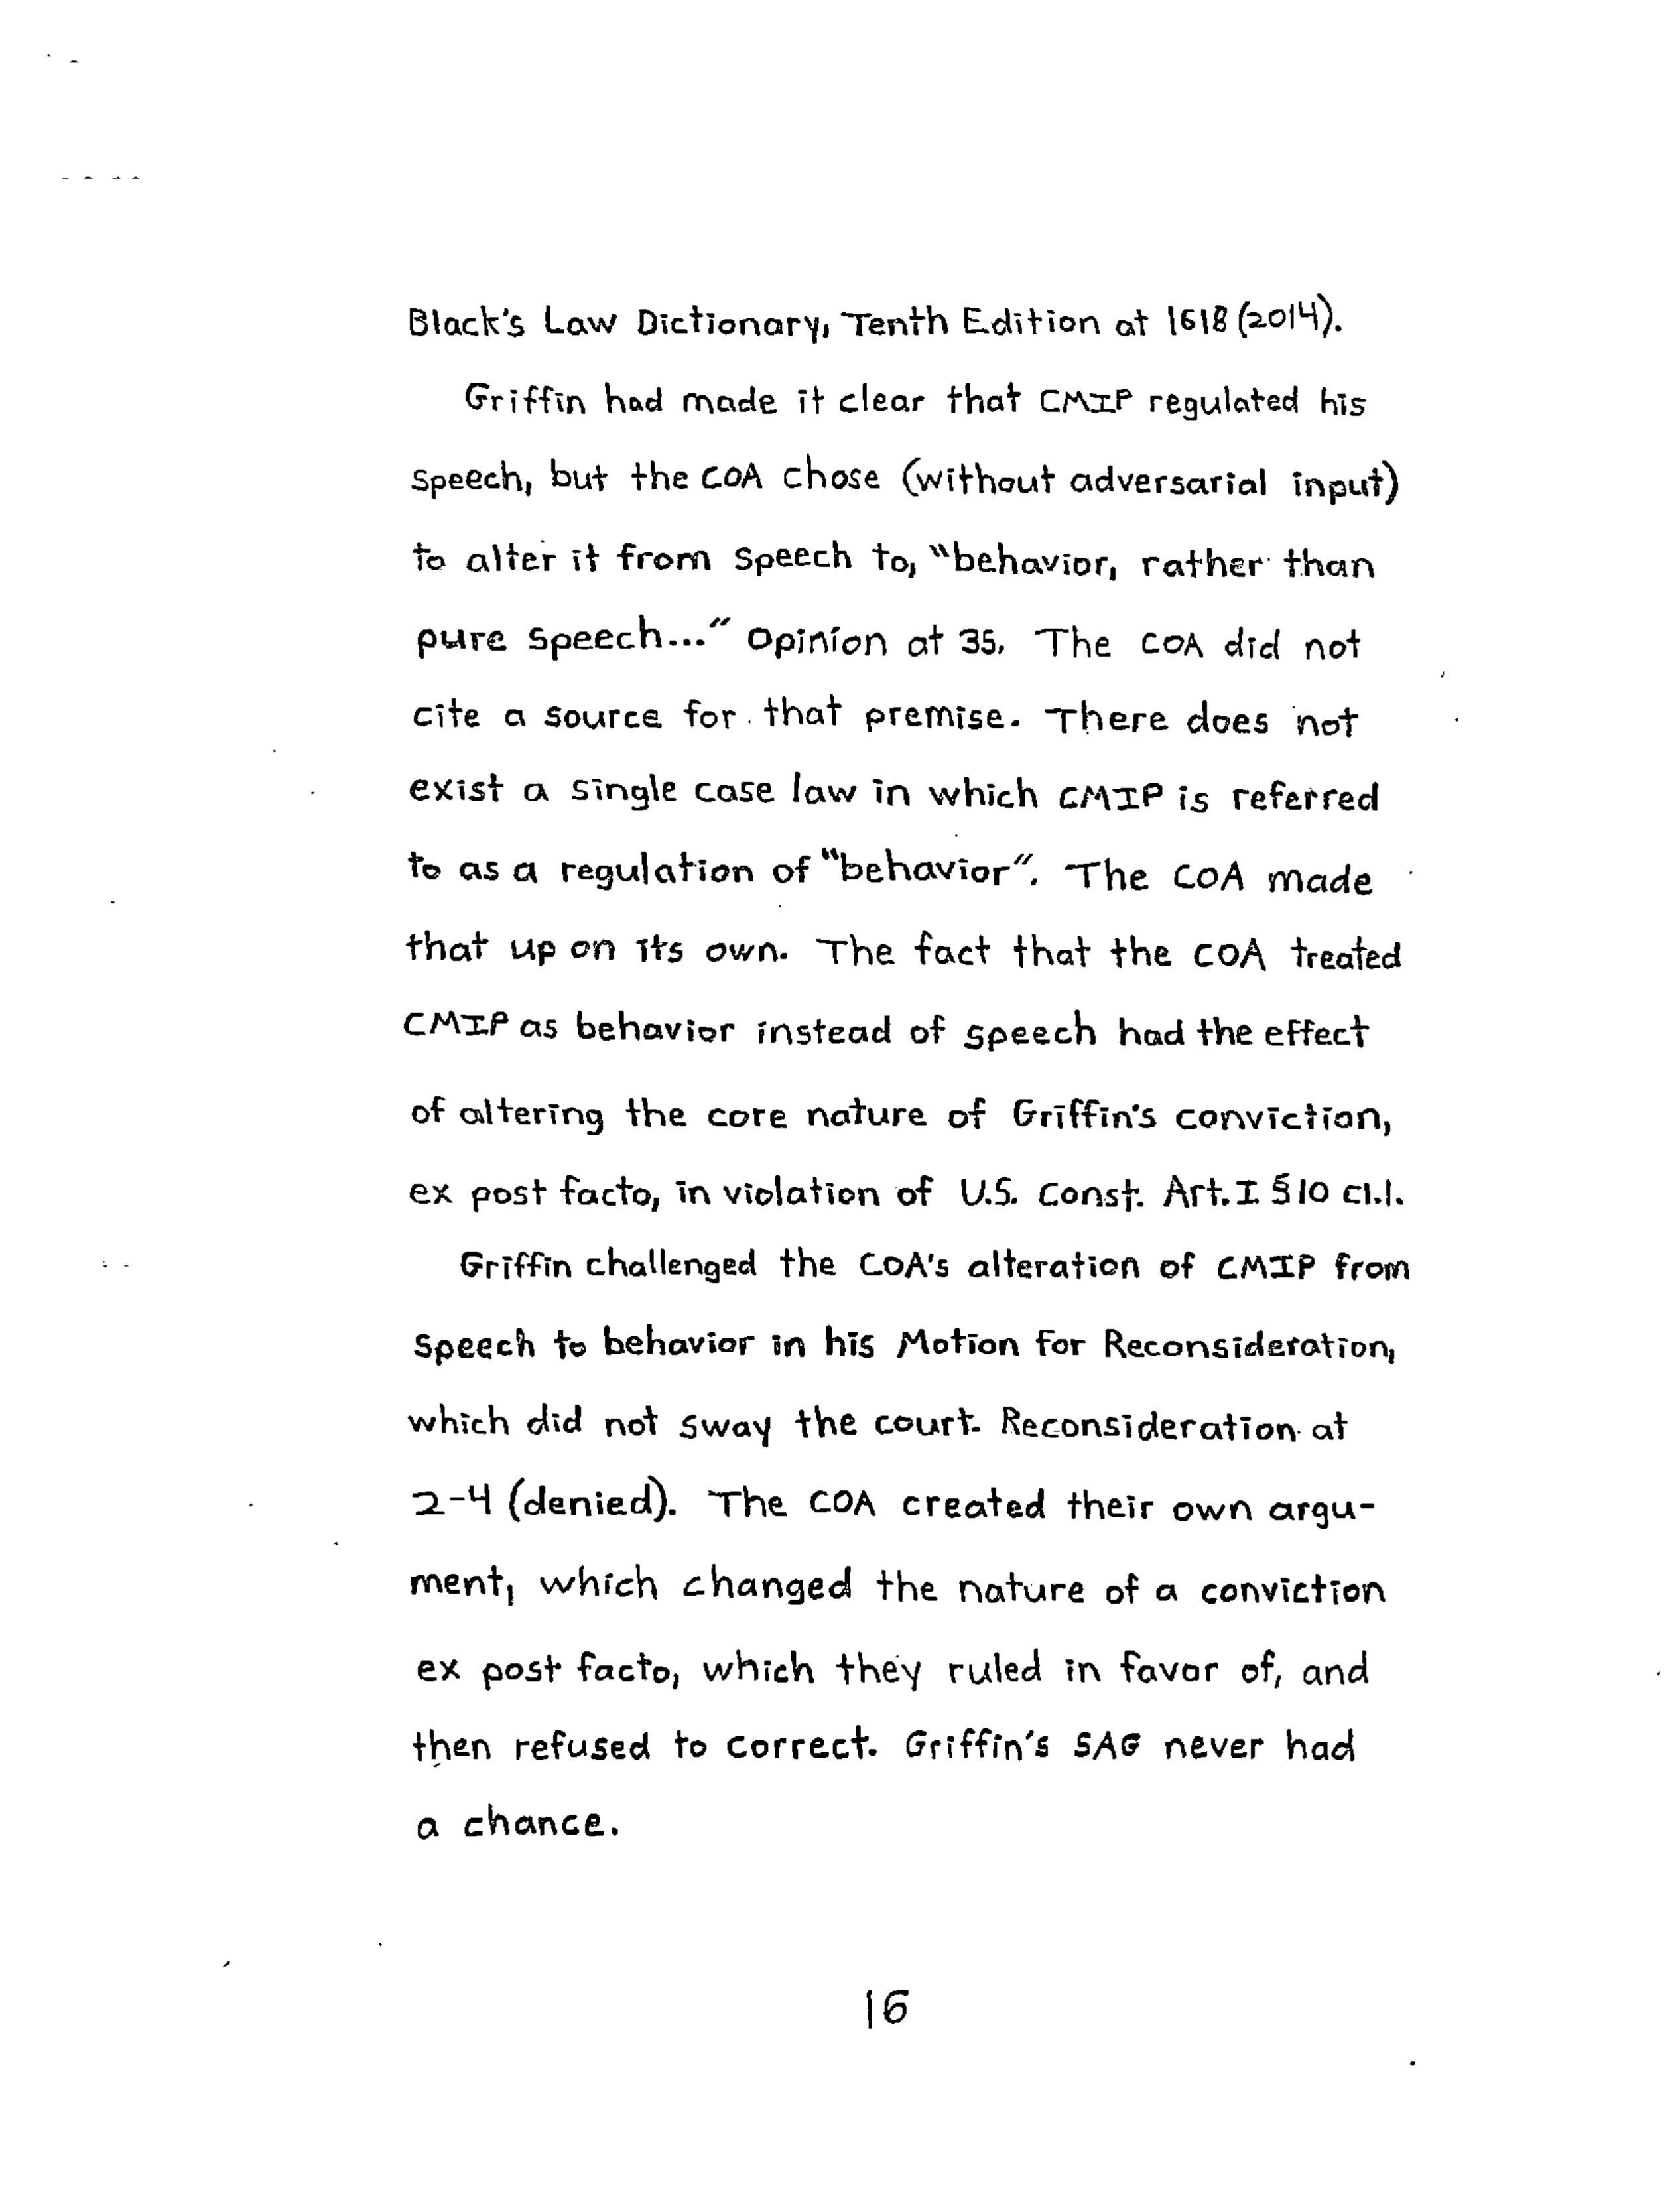 Black's Law Dictionary, Tenth Edition at 1618 (2014).
Griffin had made it clear that CMIP regulated his
speech, but the COA chose (without adversarial input)
to alter it from speech to, "behavior, rather than
pure speech..." Opinion at 35. The COA did not
cite a source for that premise. There does not
exist a single case law in which CMIP is referred
to as a regulation of "behavior". The COA made
that up on its own. The fact that the COA treated
CMIP as behavior instead of speech had the effect
of altering the core nature of Griffin's conviction,
ex post facto, in violation of U.S. Const. Art. I § 10 cl. 1.
Griffin challenged the COA's alteration of CMIP from
speech to behavior in his Motion for Reconsideration,
which did not sway the court. Reconsideration at
2-4 (denied). The COA created their own argu-
ment, which changed the nature of a conviction
ex post facto, which they ruled in favor of, and
then refused to correct. Griffin's SAG never had
a chance.
16